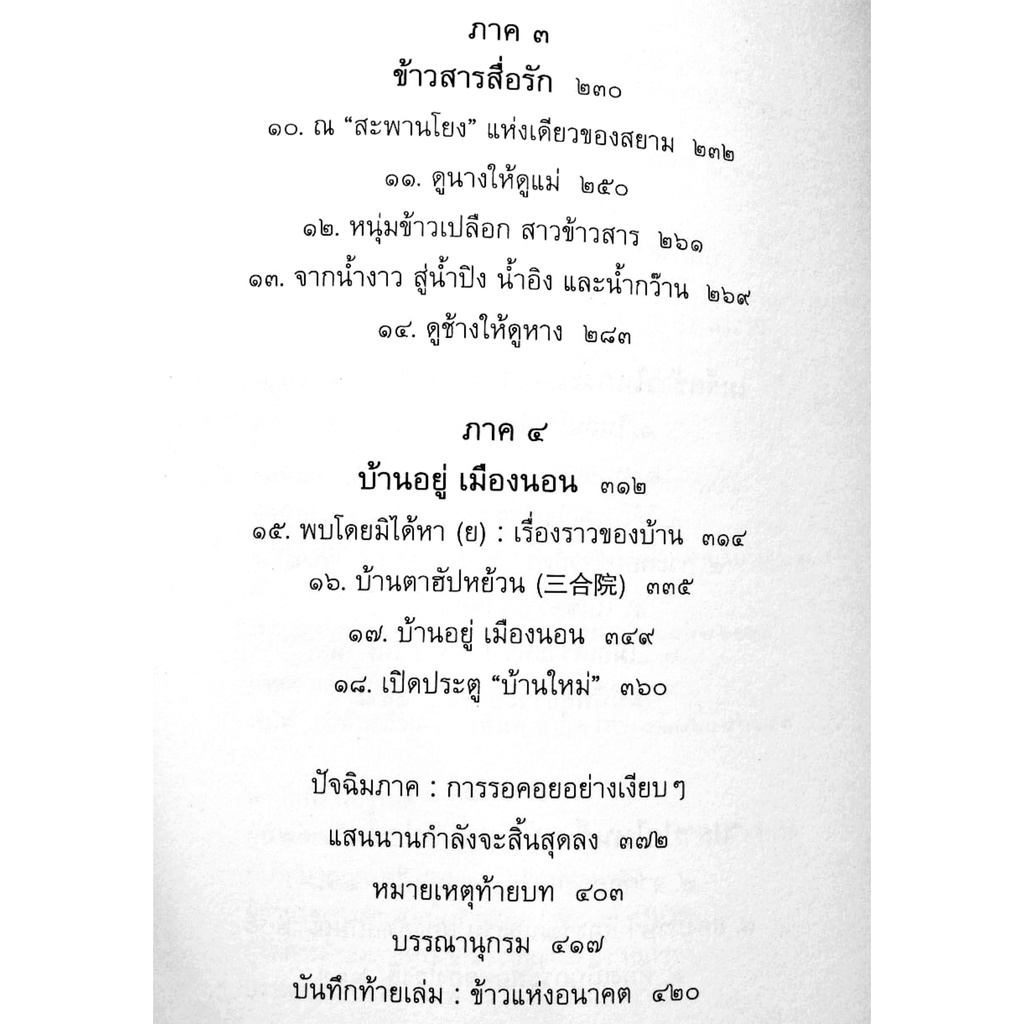 ภาค ๓
ข้าวสารสื่อรัก ๒๓๐
๑๐. ณ “สะพานโยง” แห่งเดียวของสยาม ๒๓๒
๑๑. ดูนางให้ดูแม่ ๒๕๐
๑๒. หนุ่มข้าวเปลือก สาวข้าวสาร ๒๖๑
๑๓. จากน้ำงาว สู่น้ำปิง น้ำอิง และน้ำกว๊าน ๒๖๙
๑๔. ดูช้างให้ดูหาง ๒๘๓
ภาค ๔
บ้านอยู่ เมืองนอน ๓๑๒
๑๕. พบโดยมิได้หา (ย) : เรื่องราวของบ้าน ๓๑๔
๑๖. บ้านตาฮัปหย้วน (三合院) ๓๓๕
๑๗. บ้านอยู่ เมืองนอน ๓๔๙
๑๘. เปิดประตู “บ้านใหม่” ๓๖๐
ปัจฉิมภาค : การรอคอยอย่างเงียบๆ
แสนนานกำลังจะสิ้นสุดลง ๓๗๒
หมายเหตุท้ายบท ๔๐๓
บรรณานุกรม ๔๑๗
บันทึกท้ายเล่ม : ข้าวแห่งอนาคต ๔๒๐